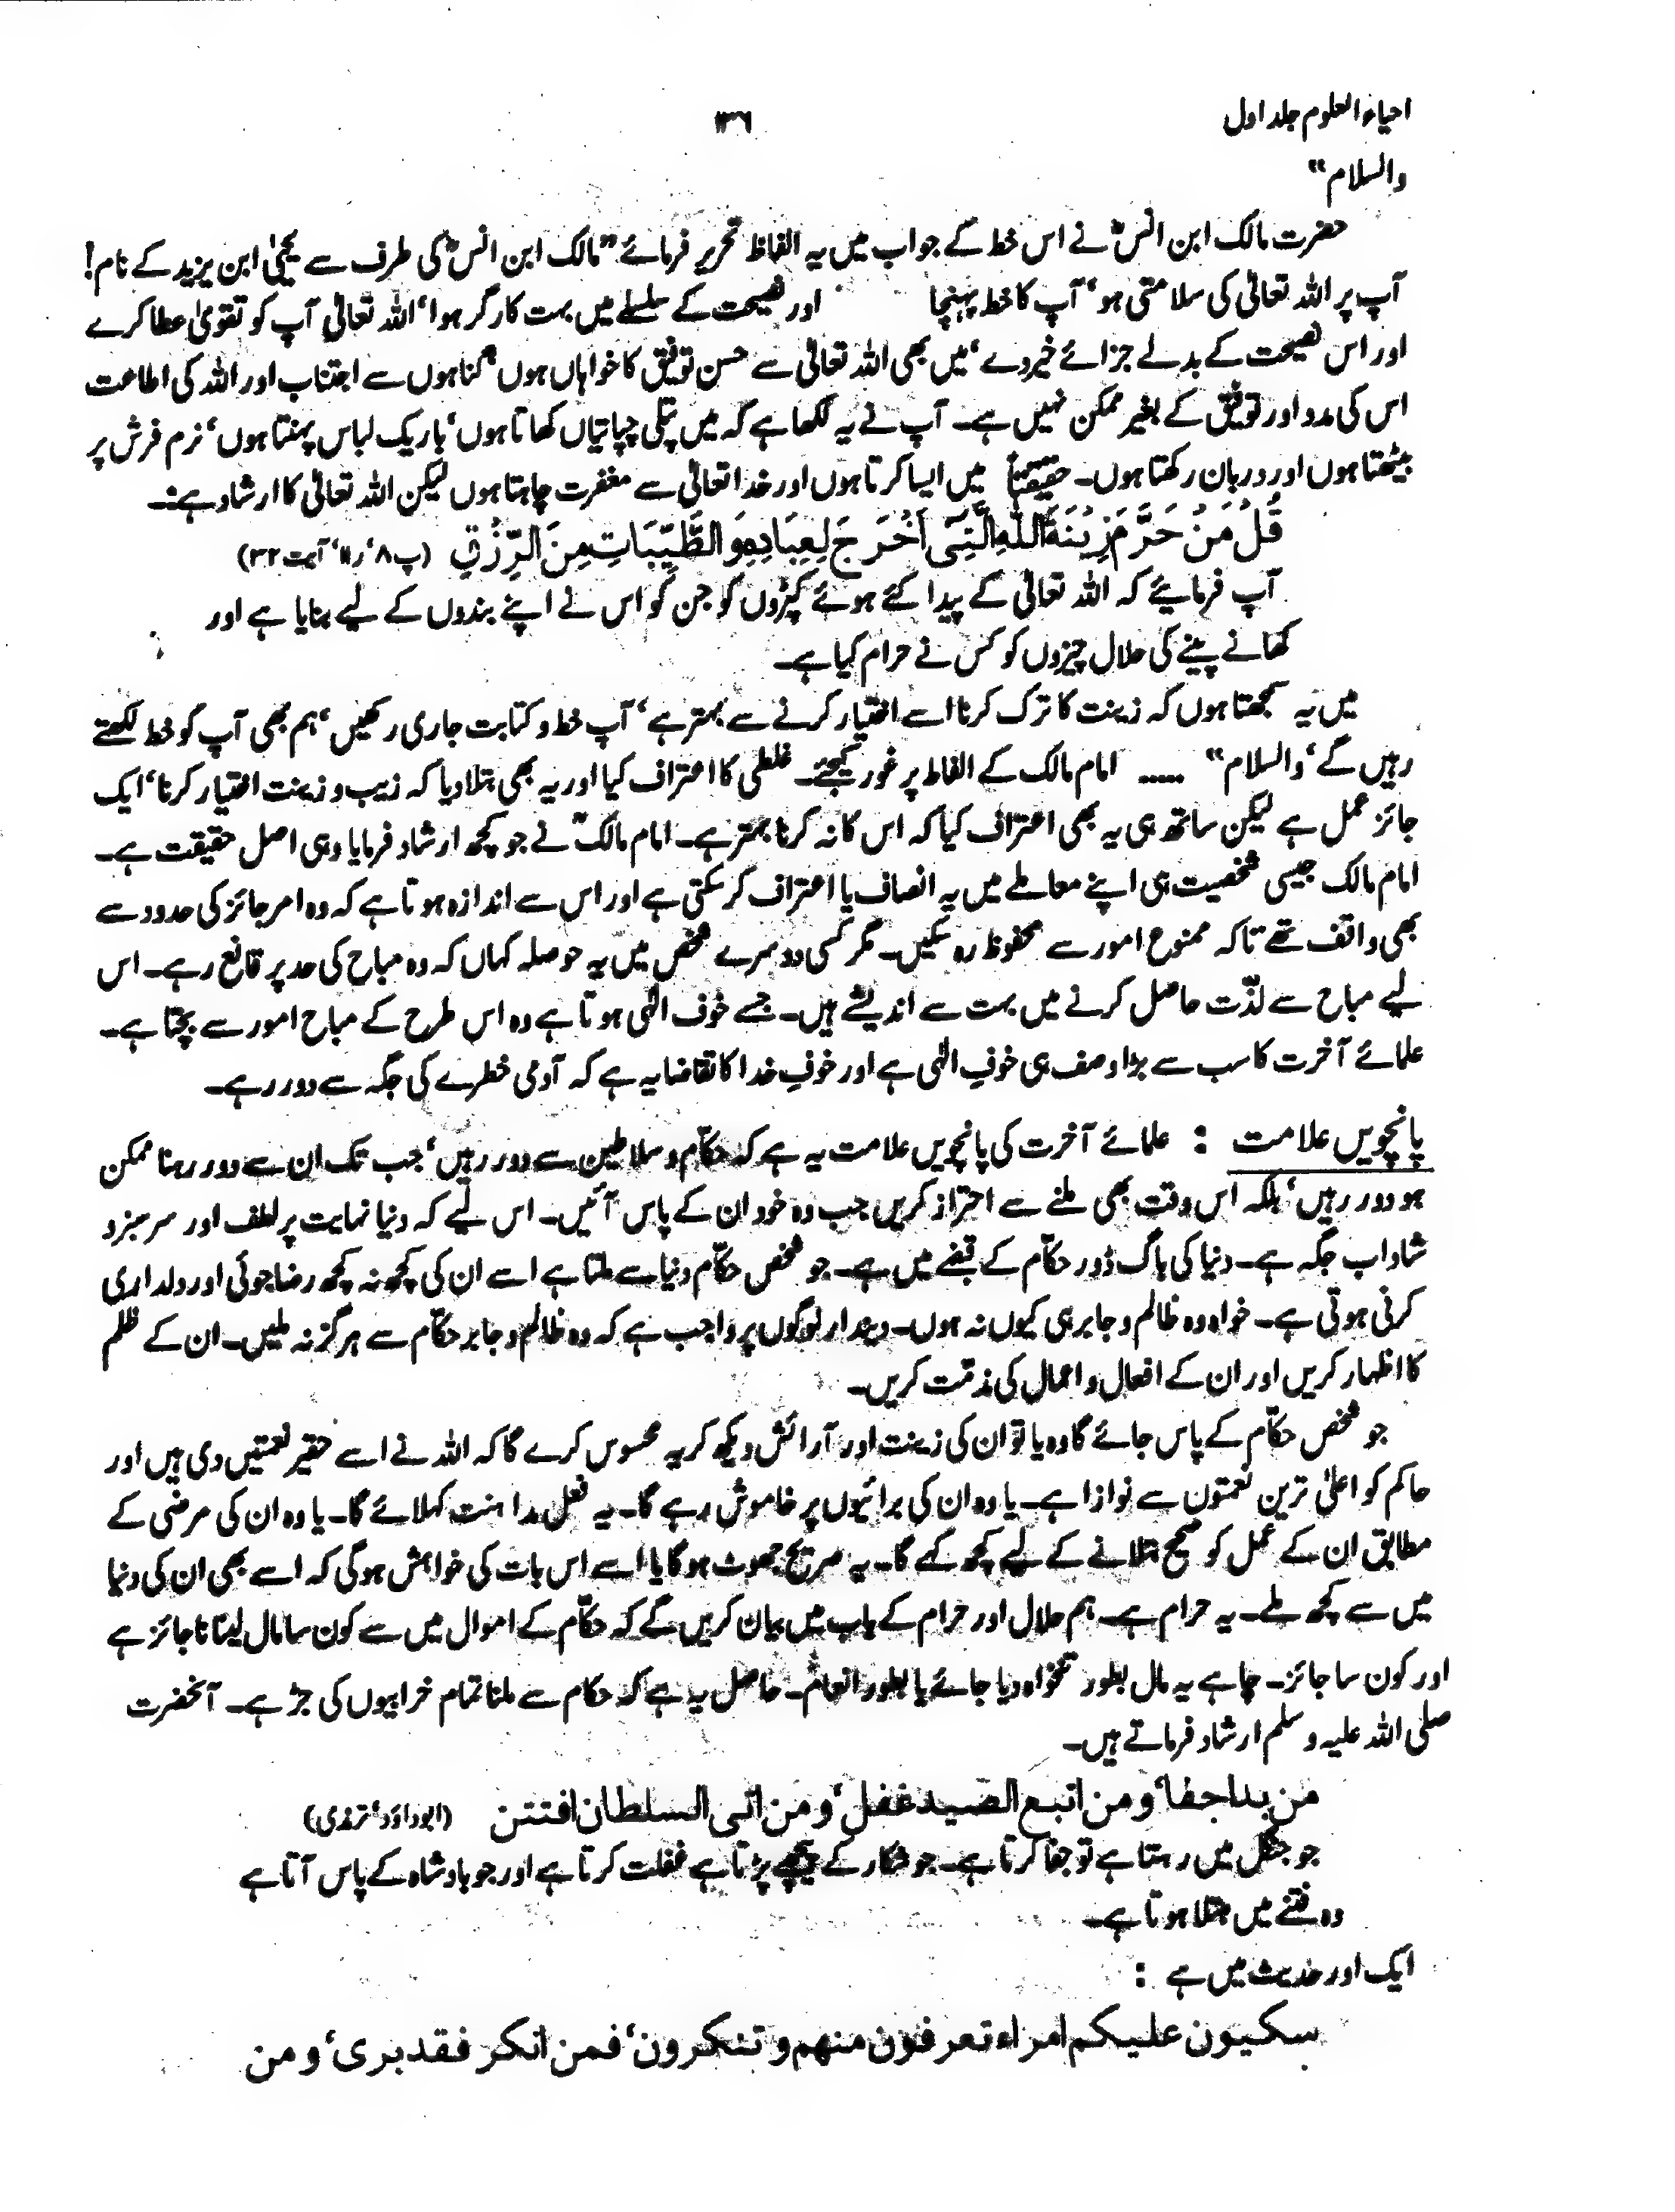 احیاء العلوم جلد اول
۱۳۶
والسلام"
حضرت مالک ابن انسؒ نے اس خط کے جواب میں یہ الفاظ تحریر فرمائے "مالک ابن انسؒ کی طرف سے یحییٰ ابن یزید کے نام!
آپ پر اللہ تعالیٰ کی سلامتی ہو' آپ کا خط پہنچا اور نصیحت کے سلسلے میں بہت کارگر ہوا' اللہ تعالیٰ آپ کو تقویٰ عطا کرے
اور اس نصیحت کے بدلے جزائے خیر دے' میں بھی اللہ تعالیٰ سے حسن توفیق کا خواہاں ہوں' گناہوں سے اجتناب اور اللہ کی اطاعت
اس کی مدد اور توفیق کے بغیر ممکن نہیں ہے۔ آپ نے یہ لکھا ہے کہ میں پتلی چپاتیاں کھاتا ہوں' باریک لباس پہنتا ہوں' نرم فرش پر
بیٹھتا ہوں اور دربان رکھتا ہوں۔ حقیقتاً میں ایسا کرتا ہوں اور خدا تعالیٰ سے مغفرت چاہتا ہوں لیکن اللہ تعالیٰ کا ارشاد ہے:۔
قُلْ مَنْ حَرَّمَ زِيْنَةَ اللّٰهِ الَّتِىْٓ اَخْرَجَ لِعِبَادِهٖ وَالطَّيِّبَاتِ مِنَ الرِّزْقِ (پ۸' ر۱۱' آیت ۳۲)
آپ فرمایئے کہ اللہ تعالیٰ کے پیدا کئے ہوئے کپڑوں کو جن کو اس نے اپنے بندوں کے لیے بنایا ہے اور
کھانے پینے کی حلال چیزوں کو کس نے حرام کیا ہے۔
میں یہ سمجھتا ہوں کہ زینت کا ترک کرنا اسے اختیار کرنے سے بہتر ہے' آپ خط و کتابت جاری رکھیں' ہم بھی آپ کو خط لکھتے
رہیں گے' والسلام" ..... امام مالک کے الفاظ پر غور کیجئے۔ غلطی کا اعتراف کیا اور یہ بھی بتلا دیا کہ زیب و زینت اختیار کرنا' ایک
جائز عمل ہے لیکن ساتھ ہی یہ بھی اعتراف کیا کہ اس کا نہ کرنا بہتر ہے۔ امام مالکؒ نے جو کچھ ارشاد فرمایا وہی اصل حقیقت ہے۔
امام مالک جیسی شخصیت ہی اپنے معاملے میں یہ انصاف یا اعتراف کر سکتی ہے اور اس سے اندازہ ہوتا ہے کہ وہ امر جائز کی حدود سے
بھی واقف تھے تاکہ ممنوع امور سے محفوظ رہ سکیں۔ مگر کسی دوسرے شخص میں یہ حوصلہ کہاں کہ وہ مباح کی حد پر قانع رہے۔ اس
لیے مباح سے لذّت حاصل کرنے میں بہت سے اندیشے ہیں۔ جسے خوف الٰہی ہوتا ہے وہ اس طرح کے مباح امور سے بچتا ہے۔
علمائے آخرت کا سب سے بڑا وصف ہی خوفِ الٰہی ہے اور خوفِ خدا کا تقاضا یہ ہے کہ آدمی خطرے کی جگہ سے دور رہے۔
پانچویں علامت : علمائے آخرت کی پانچویں علامت یہ ہے کہ حکّام و سلاطین سے دور رہیں' جب تک ان سے دور رہنا ممکن
ہو دور رہیں' بلکہ اس وقت بھی ملنے سے احتراز کریں جب وہ خود ان کے پاس آئیں۔ اس لیے کہ دنیا نہایت پر لطف اور سرسبز و
شاداب جگہ ہے۔ دنیا کی باگ ڈور حکّام کے قبضے میں ہے۔ جو شخص حکّام دنیا سے ملتا ہے اسے ان کی کچھ نہ کچھ رضا جوئی اور دلداری
کرنی ہوتی ہے۔ خواہ وہ ظالم و جابر ہی کیوں نہ ہوں۔ دیندار لوگوں پر واجب ہے کہ وہ ظالم و جابر حکّام سے ہرگز نہ ملیں۔ ان کے ظلم
کا اظہار کریں اور ان کے افعال و اعمال کی مذمّت کریں۔
جو شخص حکّام کے پاس جائے گا وہ یا تو ان کی زینت اور آرائش دیکھ کر یہ محسوس کرے گا کہ اللہ نے اسے حقیر نعمتیں دی ہیں اور
حاکم کو اعلیٰ ترین نعمتوں سے نوازا ہے۔ یا وہ ان کی برائیوں پر خاموش رہے گا۔ یہ فعل مداہنت کہلائے گا۔ یا وہ ان کی مرضی کے
مطابق ان کے عمل کو صحیح بتلانے کے لیے کچھ کہے گا۔ یہ صریح جھوٹ ہوگا یا اسے اس بات کی خواہش ہوگی کہ اسے بھی ان کی دنیا
میں سے کچھ ملے۔ یہ حرام ہے۔ ہم حلال اور حرام کے باب میں بیان کریں گے کہ حکّام کے اموال میں سے کون سا مال لینا ناجائز ہے
اور کون سا جائز۔ چاہے یہ مال بطور تنخواہ دیا جائے یا بطور انعام۔ حاصل یہ ہے کہ حکام سے ملنا تمام خرابیوں کی جڑ ہے۔ آنحضرت
صلی اللہ علیہ وسلم ارشاد فرماتے ہیں۔
من بدا جفا' ومن اتبع الصيد غفل' ومن اتى السلطان افتتن (ابوداؤد' ترمذی)
جو جنگل میں رہتا ہے تو جفا کرتا ہے۔ جو شکار کے پیچھے پڑتا ہے غفلت کرتا ہے اور جو بادشاہ کے پاس آتا ہے
وہ فتنے میں مبتلا ہوتا ہے۔
ایک اور حدیث میں ہے :
سكيون عليكم امراء تعرفون منهم وتنكرون' فمن انكر فقد برى' ومن